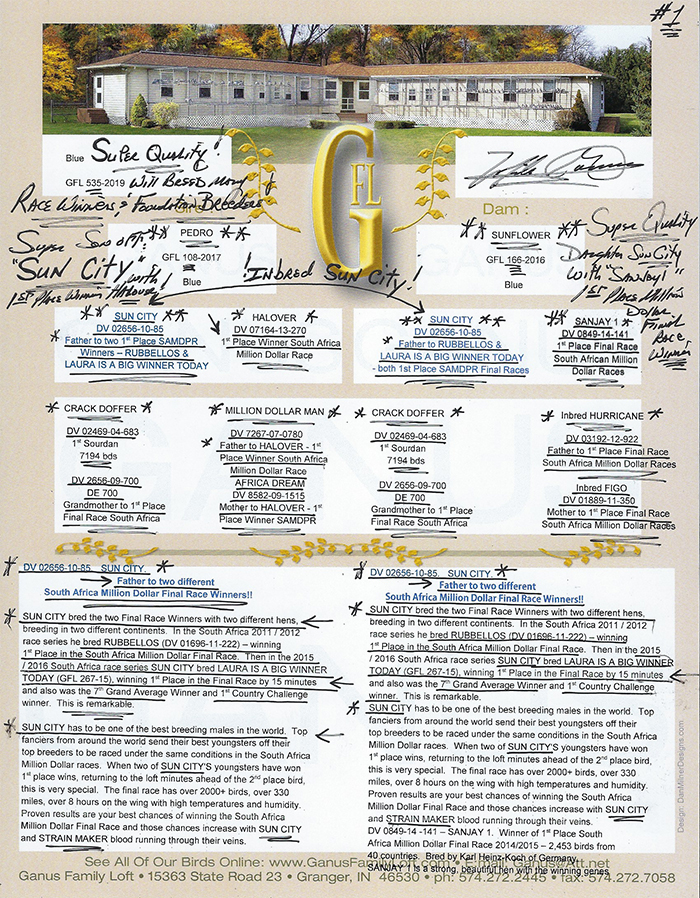 #1
Blue Super Quality!
GFL 535-2019 Will Breed Many
Race Winners & Foundation Breeders
GFL
Sire :
Dam :
Super Son of!
"Sun City" with
1st Place Winner Halover
** PEDRO **
GFL 108-2017
Blue
! Inbred Sun City!
** SUNFLOWER **
GFL 166-2016
Blue
Super Quality
Daughter Sun City
with "Sanjay!"
1st Place Million
Dollar
Final
Race
Winner
** SUN CITY **
DV 02656-10-85
* Father to two 1st Place SAMDPR
Winners – RUBBELLOS &
LAURA IS A BIG WINNER TODAY
* HALOVER *
DV 07164-13-270
1st Place Winner South Africa
Million Dollar Race
** SUN CITY **
DV 02656-10-85
* Father to RUBBELLOS &
LAURA IS A BIG WINNER TODAY
- both 1st Place SAMDPR Final Races
* SANJAY 1 *
DV 0849-14-141
1st Place Final Race
South African Million
Dollar Races
* CRACK DOFFER *
DV 02469-04-683
1st Sourdan
7194 bds
DV 2656-09-700
DE 700
Grandmother to 1st Place
Final Race South Africa
* MILLION DOLLAR MAN *
DV 7267-07-0780
* Father to HALOVER - 1st
Place Winner South Africa
Million Dollar Race
AFRICA DREAM
DV 8582-09-1515
Mother to HALOVER - 1st
Place Winner SAMDPR
* CRACK DOFFER *
DV 02469-04-683
1st Sourdan
7194 bds
DV 2656-09-700
DE 700
Grandmother to 1st Place
Final Race South Africa
* Inbred HURRICANE *
DV 03192-12-922
Father to 1st Place Final Race
South Africa Million Dollar Races
Inbred FIGO
DV 01889-11-350
Mother to 1st Place Final Race
South Africa Million Dollar Races
* DV 02656-10-85. SUN CITY. *
Father to two different
South Africa Million Dollar Final Race Winners!!
* SUN CITY bred the two Final Race Winners with two different hens,
breeding in two different continents. In the South Africa 2011 / 2012
race series he bred RUBBELLOS (DV 01696-11-222) – winning
1st Place in the South Africa Million Dollar Final. Then in the 2015
/ 2016 South Africa race series SUN CITY bred LAURA IS A BIG WINNER
TODAY (GFL 267-15), winning 1st Place in the Final Race by 15 minutes
and also was the 7th Grand Average Winner and 1st Country Challenge
winner. This is remarkable.
* SUN CITY has to be one of the best breeding males in the world. Top
fanciers from around the world send their best youngsters off their
top breeders to be raced under the same conditions in the South Africa
Million Dollar races. When two of SUN CITY'S youngsters have won
1st place wins, returning to the loft minutes ahead of the 2nd place bird,
this is very special. The final race has over 2000+ birds, over 330
miles, over 8 hours on the wing with high temperatures and humidity.
Proven results are your best chances of winning the South Africa
Million Dollar Final Race and those chances increase with SUN CITY
and STRAIN MAKER blood running through their veins.
* DV 02656-10-85. SUN CITY. *
Father to two different
South Africa Million Dollar Final Race Winners!!
* SUN CITY bred the two Final Race Winners with two different hens,
breeding in two different continents. In the South Africa 2011 / 2012
race series he bred RUBBELLOS (DV 01696-11-222) – winning
1st Place in the South Africa Million Dollar Final. Then in the 2015
/ 2016 South Africa race series SUN CITY bred LAURA IS A BIG WINNER
TODAY (GFL 267-15), winning 1st Place in the Final Race by 15 minutes
and also was the 7th Grand Average Winner and 1st Country Challenge
winner. This is remarkable.
* SUN CITY has to be one of the best breeding males in the world. Top
fanciers from around the world send their best youngsters off their
top breeders to be raced under the same conditions in the South Africa
Million Dollar races. When two of SUN CITY'S youngsters have won
1st place wins, returning to the loft minutes ahead of the 2nd place bird,
this is very special. The final race has over 2000+ birds, over 330
miles, over 8 hours on the wing with high temperatures and humidity.
Proven results are your best chances of winning the South Africa
Million Dollar Final Race and those chances increase with SUN CITY
and STRAIN MAKER blood running through their veins.
DV 0849-14 -141 – SANJAY 1. Winner of 1st Place South
Africa Million Dollar Final Race 2014/2015 – 2,453 birds from
40 countries. Bred by Karl Heinz-Koch of Germany.
SANJAY 1 is a strong, beautiful hen with the winning genes
Design: DanMilnerDesigns.com
See All Of Our Birds Online: www.GanusFamilyLoft.com • E-mail: Ganus@Att.net
Ganus Family Loft • 15363 State Road 23 • Granger, IN 46530 • ph: 574.272.2445 • fax: 574.272.7058